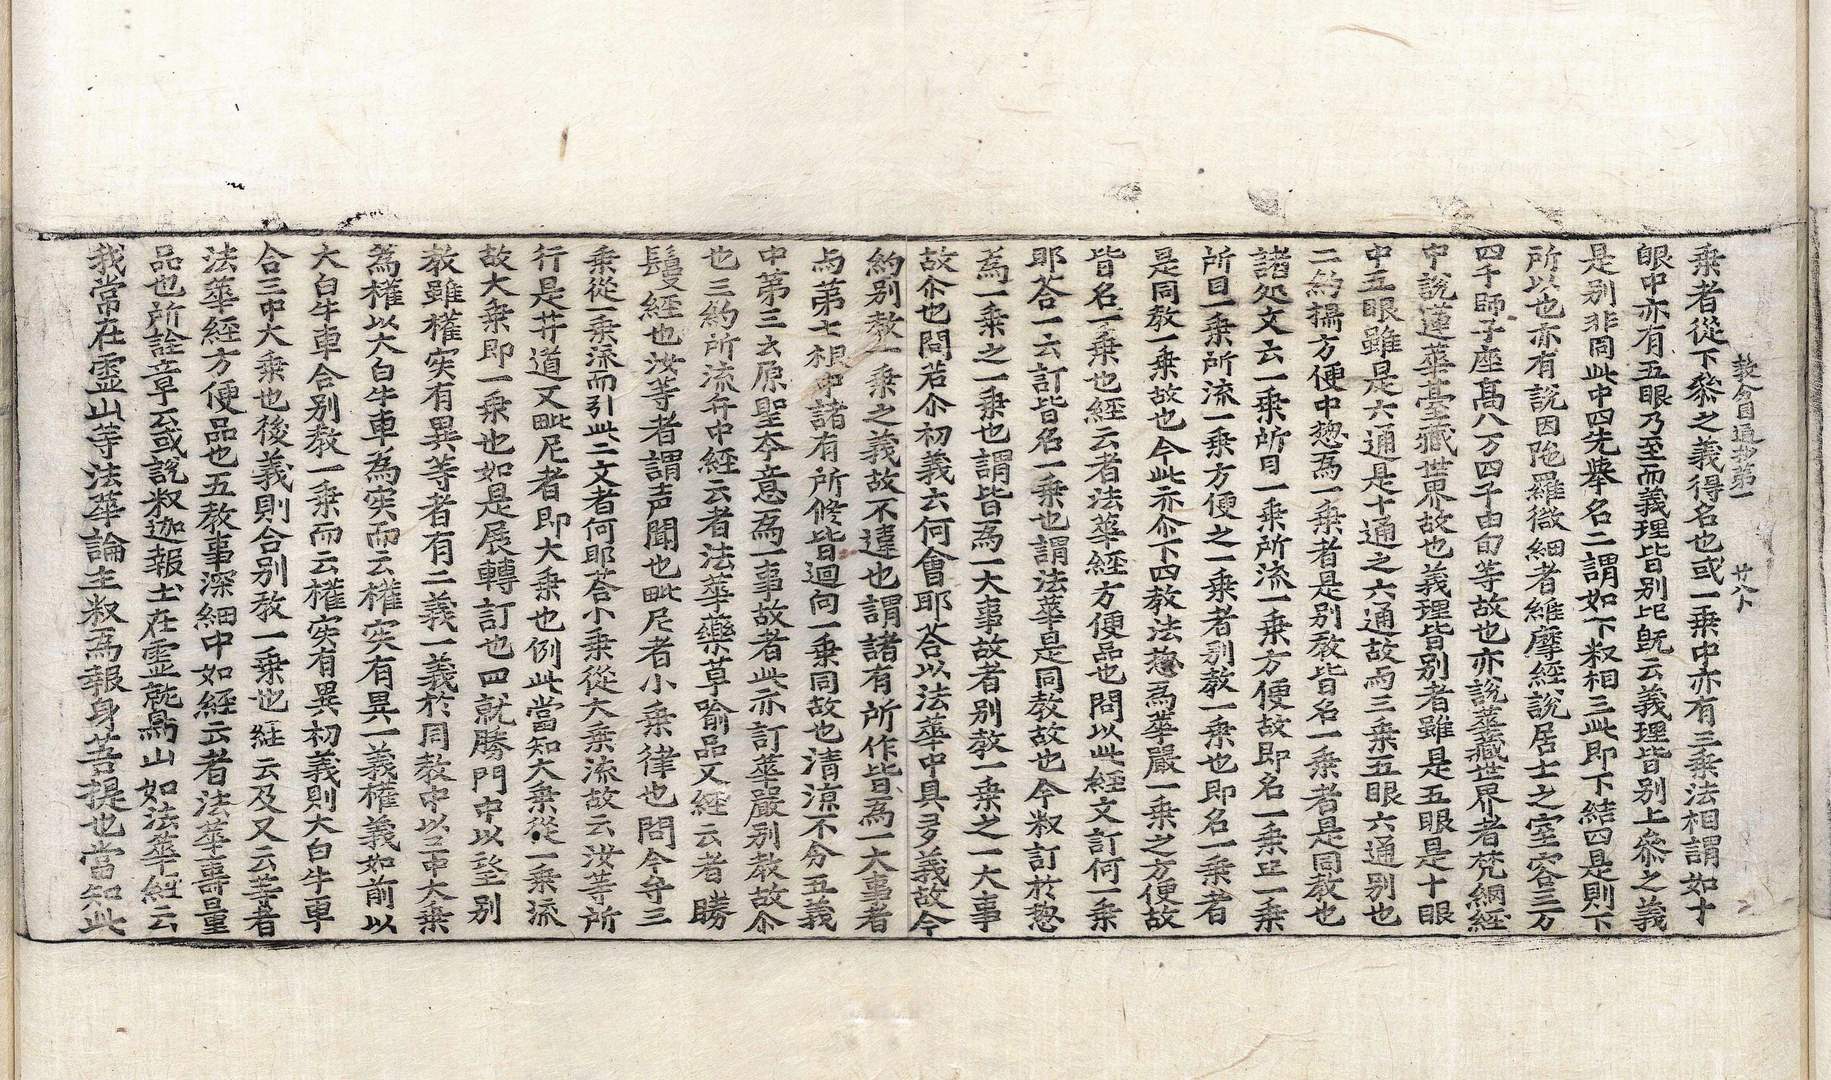 教分圓通抄第一 廿八卜
乗者從下叅之義得名也或一乗中亦有三乗法相謂如十
眼中亦有五眼乃至而義理皆別㫖旣云義理皆別上叅之義
是別非同此中四先擧名二謂如下叔相三此即下結四是則下
所以也亦有說因陁羅微細者維摩經說居士之室容三万
四千師子座高八万四千由旬等故也亦說華藏世界者梵網經
中說蓮華臺藏世界故也義理皆別者雖是五眼是十眼
中五眼雖是六通是十通之六通故而三乗五眼六通別也
二約攝方便中惣爲一乗者是別教皆名一乗者是同教也
諸處文云一乗所目一乗所流一乗方便故即名一乗㱏一乗
所目一乗所流一乗方便之一乗者別教一乗也即名一乗者
是同教一乗故也今此亦尒下四教法惣爲華嚴一乗之方便故
皆名一乗也經云者法華經方便品也問以此經文訂何一乗
耶荅一云訂皆名一乗也謂法華是同教故也今叔訂於惣
爲一乗之一乗也謂皆爲一大事故者別教一乗之一大事
故尒也問若尒初義云何會耶荅以法華中具多義故今
約別教一乗之義故不違也謂諸有所作皆爲一大事者
与第七根中諸有所修皆迴向一乗同故也清凉不分五義
中第三云原聖夲意爲一事故者此亦訂華嚴別教故尒
也三約所流弁中經云者法華藥草喻品又經云者勝
鬘經也汝等者謂声聞也毗尼者小乗律也問今守三
乗從一乗流而引此二文者何耶荅小乗從大乗流故云汝等所
行是菩道又毗尼者即大乗也例此當知大乗從一乗流
故大乗即一乗也如是展轉訂也四就勝門中以望別
教雖權实有異等者有二義一義於同教中以三中大乗
為權以大白牛車為实而云權实有異一義權義如前以
大白牛車合別教一乗而云權实有異初義則大白牛車
合三中大乗也後義則合別教一乗也経云及又云等者
法華經方便品也五教事深細中如經云者法華壽量
品也所詮章云或說叔迦報土在靈鷲山如法華經云
我常在靈山等法華論主叔爲報身菩提也當知此